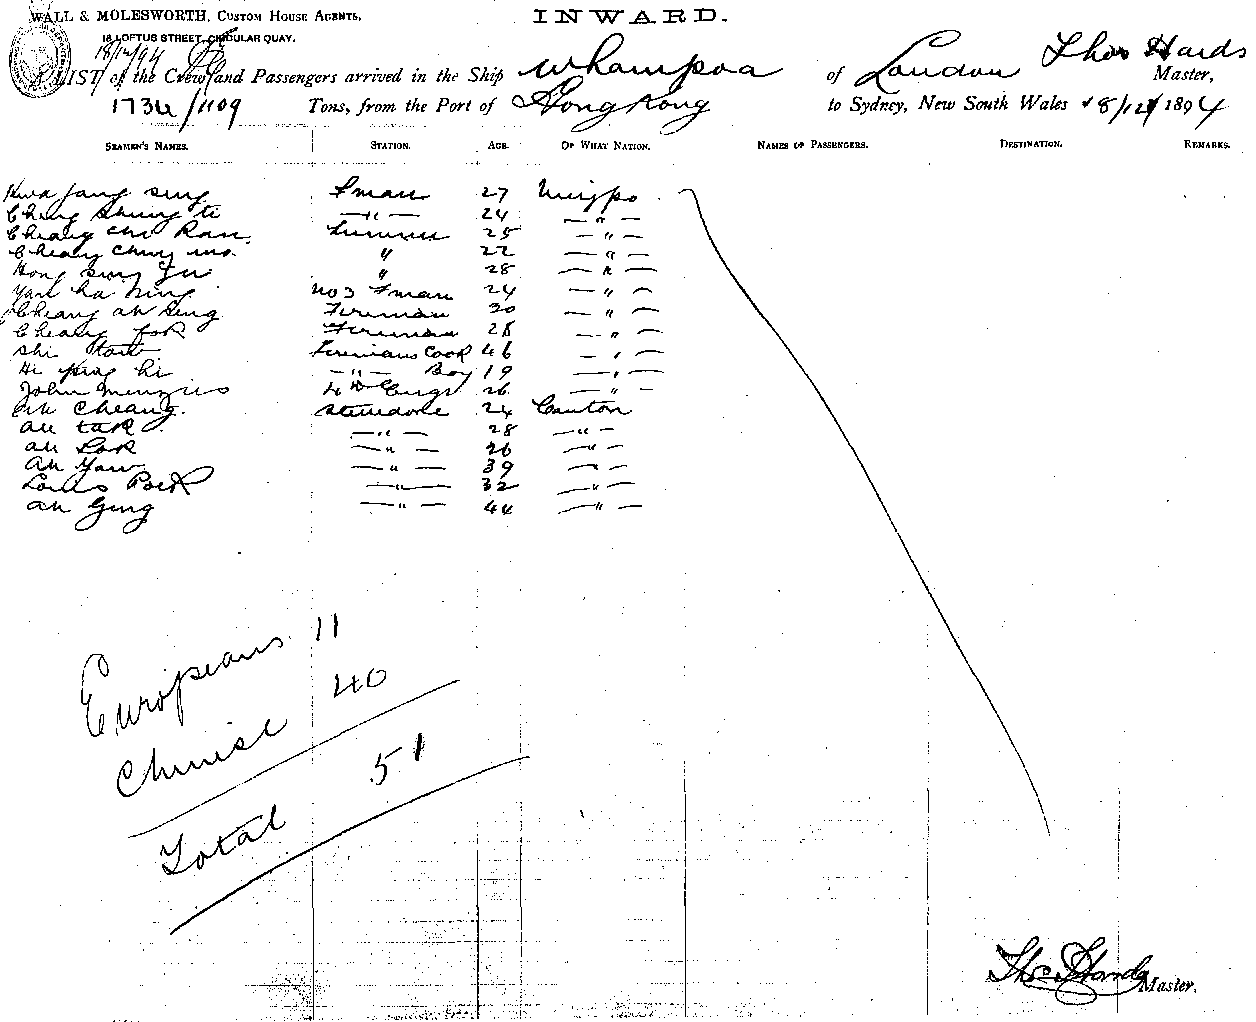 WALL & MOLESWORTH, CUSTOM HOUSE AGENTS,
INWARD.
18 LOFTUS STREET, CIRCULAR QUAY.
18/12/94
Thos Hards
A LIST of the Crew and Passengers arrived in the Ship Whampoa of London Master,
1736/1109 Tons, from the Port of Hong Kong to Sydney, New South Wales 18/12/1894
SEAMEN'S NAMES. STATION. AGE. OF WHAT NATION. NAMES OF PASSENGERS. DESTINATION. REMARKS.
sing Fman 27 Ningpo
Cheng —"— 24 —"—
Cheang 25 —"—
Cheang " 22 —"—
Hong sing " 28 —"—
Yan ha no 3 Fman 24 —"—
Cheang ah Fireman 30 —"—
Cheang fok Fireman 28 —"—
Shi Firemans Cook 46 —"—
hi —"— Boy 19 —"—
John Menzies 4th Engr 26 —"—
ah Cheang. Stevedore 24 Canton
ah tak —"— 28 —"—
ah Lok —"— 26 —"—
ah Yaw —"— 39 —"—
Louis Pock —"— 32 —"—
ah Ging —"— 44 —"—
Europeans 11
Chinese 40
Total 51
Thos Hards Master.